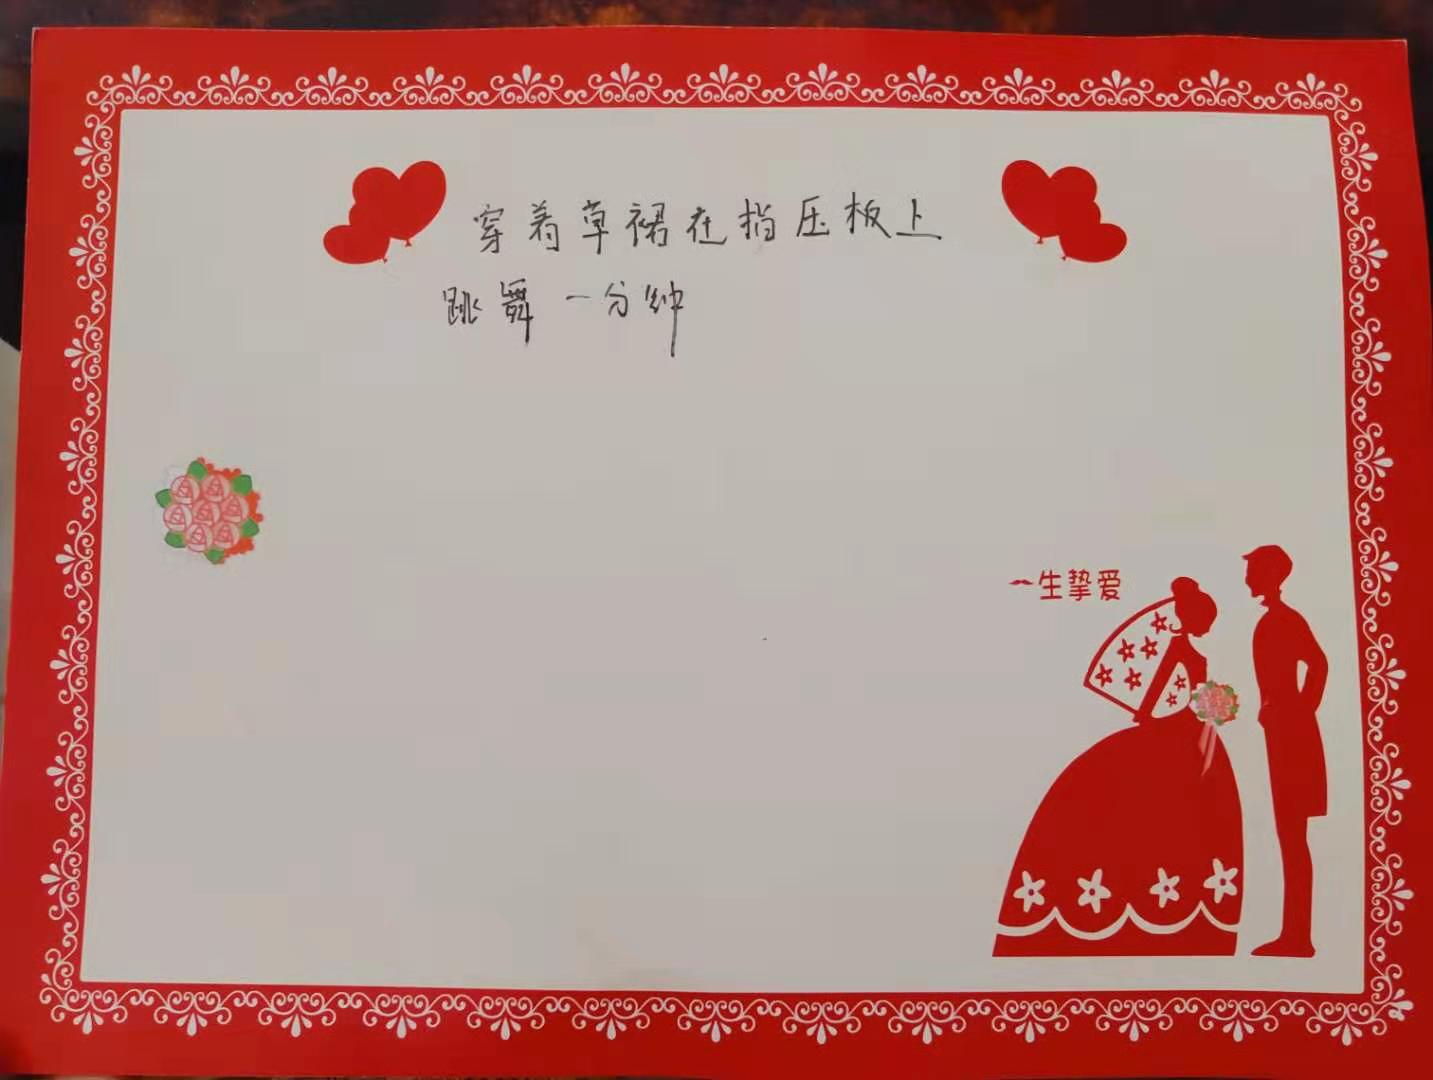 穿着草裙在挡压板上
跳舞一分钟
一生挚爱